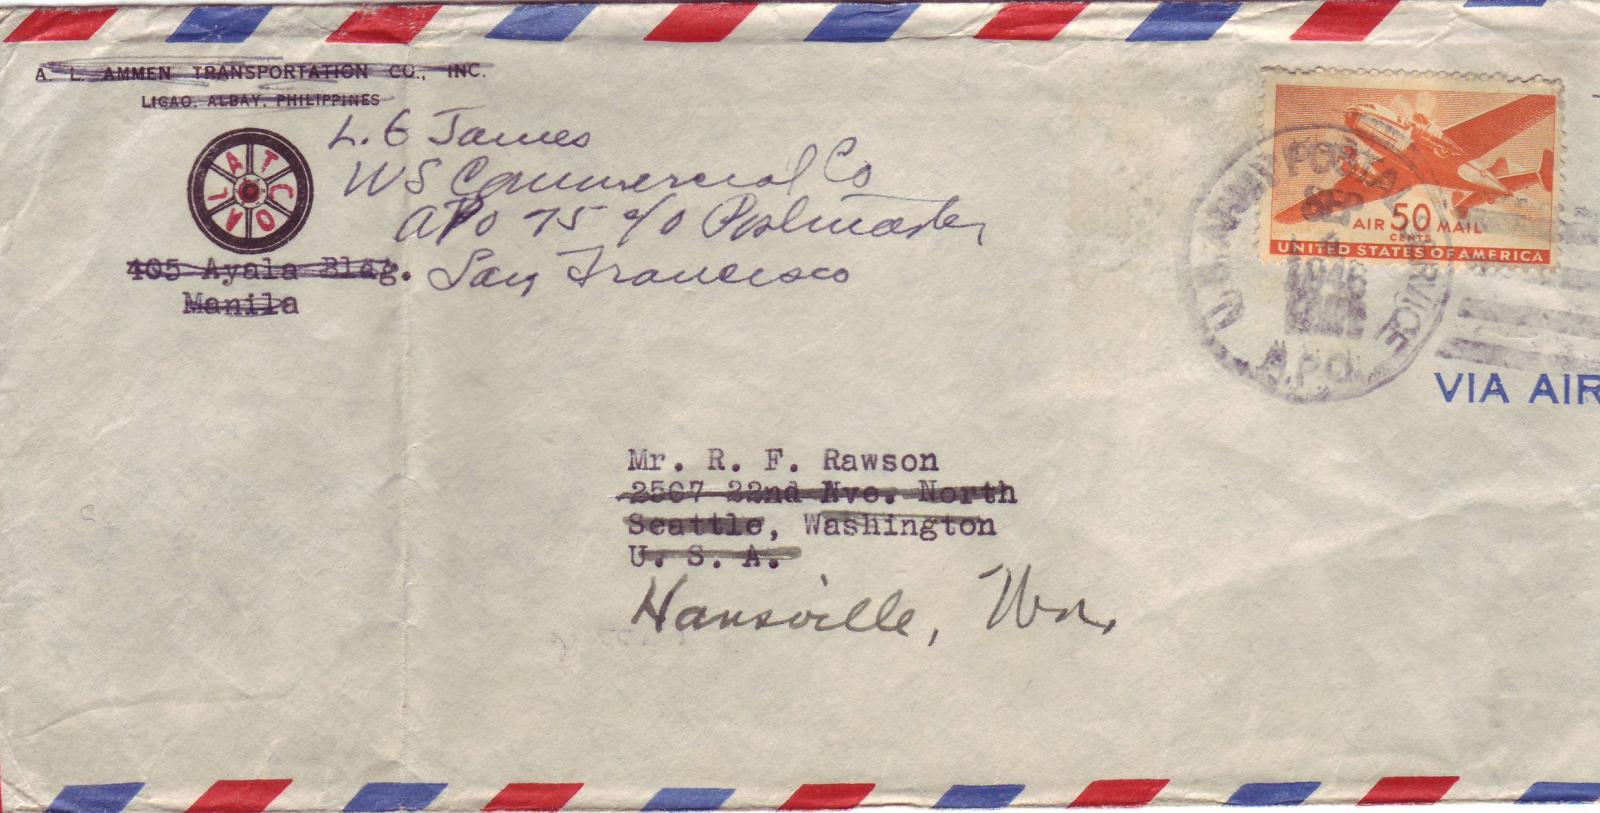 A. L. AMMEN TRANSPORTATION CO., INC.
LIGAO, ALBAY, PHILIPPINES
ALATCO
405 Ayala Bldg.
Manila
L. E James
WS Commercial Co
APO 75 c/o Postmaster
San Francisco
AIR 50 MAIL
CENTS
UNITED STATES OF AMERICA
U.S. ARMY POSTAL SERVICE
SEP
4
1946
A.P.O.
VIA AIR
Mr. R. F. Rawson
2567 22nd Nve. North
Seattle, Washington
U. S. A.
Hansville, Wn.